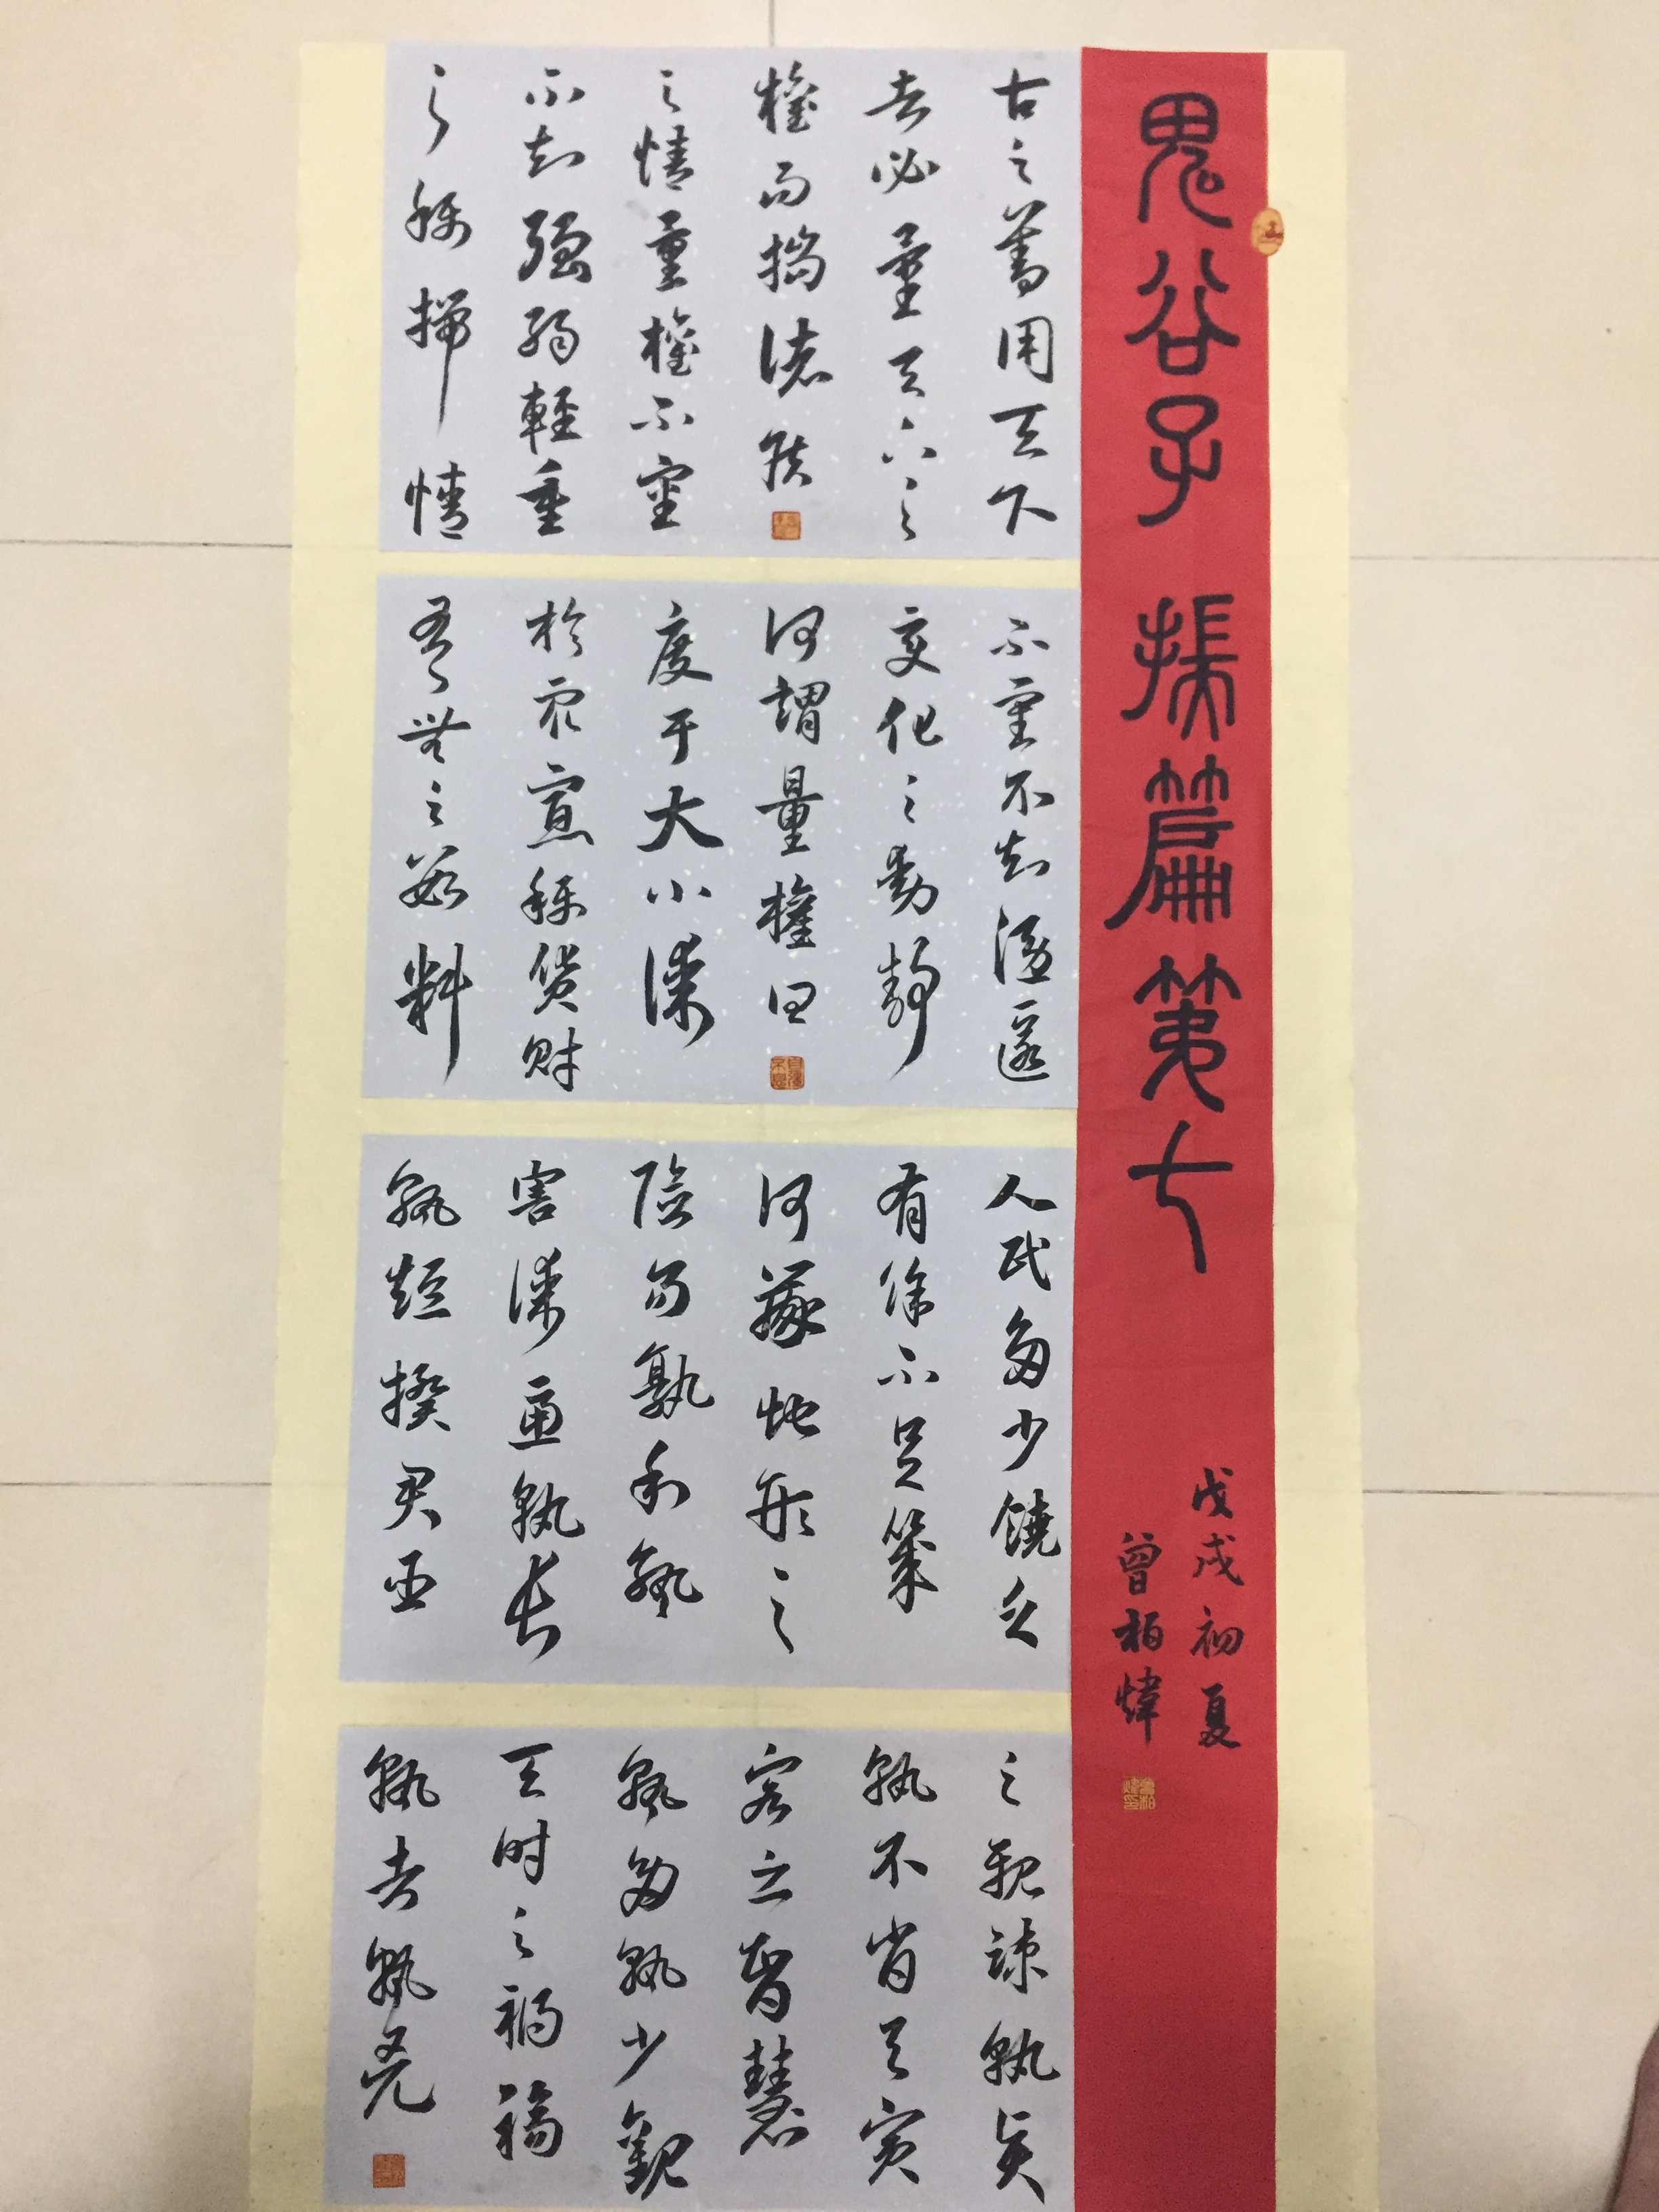 鬼谷子 揣篇第七
戊戌初夏
曾柏煒
古之善用天下
者必量天下之
權而揣諸侯
之情量權不審
不知強弱輕重
之稱揣情
不審不知隱匿
變化之動靜
何謂量權曰
度于大小謀
於眾寡稱貨財
有無之數料
人民多少饒乏
有餘不足幾
何辨地形之
險易孰利孰
害謀慮孰長
孰短揆君臣
之親疏孰賢
孰不肖與賓
客之智慧
孰多孰少觀
天時之禍福
孰吉孰凶